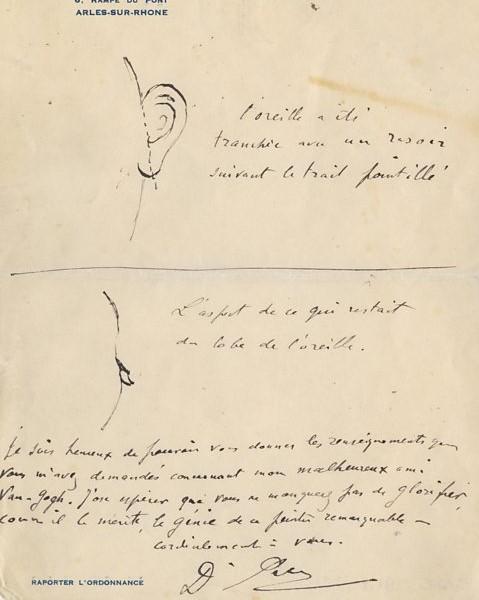 6, RAMPE DU PONT
ARLES-SUR-RHONE
l'oreille a été
tranchée avec un rasoir
suivant le trait pointillé
L'aspect de ce qui restait
du lobe de l'oreille.
Je suis heureux de pouvoir vous donner les renseignements que
vous m'avez demandés concernant mon malheureux ami
Van-Gogh. J'ose espérer que vous ne manquerez pas de glorifier,
comme il le mérite, le génie de ce peintre remarquable —
cordialement à vous.
Dr Rey
RAPORTER L'ORDONNANCE